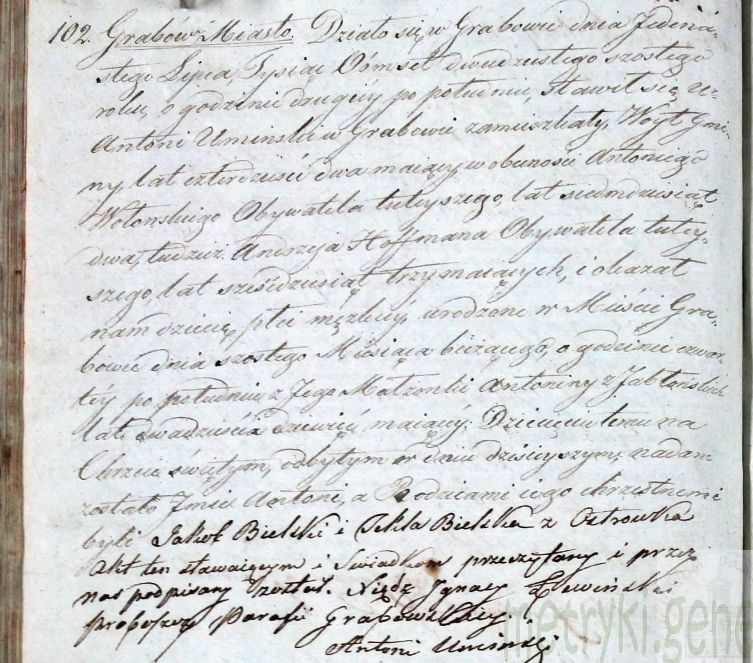 102. Grabów Miasto. Działo się w Grabowie dnia Jedena-
stego Lipca, Tysiąc Ośmset dwudziestego szostego
roku, o godzinie drugiey po południu, stawił się
Antoni Uminski w Grabowie zamieszkały, Woyt Gmi-
ny, lat czterdzieści dwa maiący w obecności Antoniego
Wolonskiego Obywatela tuteyszego, lat siedmdziesiąt
dwa, tudzież Andrzeja Hoffmana Obywatela tutey-
szego, lat sześćdziesiąt trzy maiących, i okazał
nam dziecię płci męzkiey, urodzone w Mieście Gra-
bowie dnia szostego Miesiąca bieżącego, o godzinie czwar-
tey po południu z Jego Małżonki Antoniny z Jabłonskich
lat dwadzieścia dziewięć maiącey. Dziecięciu temu na
Chrzcie świętym, odbytym w dniu dzisieyszym, nadane
zostało Jmie Antoni, a Rodzicami iego chrzestnemi
byli Jakob Bielski i Tekla Bielska z Ostrowka
Akt ten stawaiącym i Swiadkom przeczytany i przez
nas podpisany został. Xiądz Ignacy Lewiński
Proboszcz Parafii Grabowskiey.
Antoni Uminski
metryki.gene